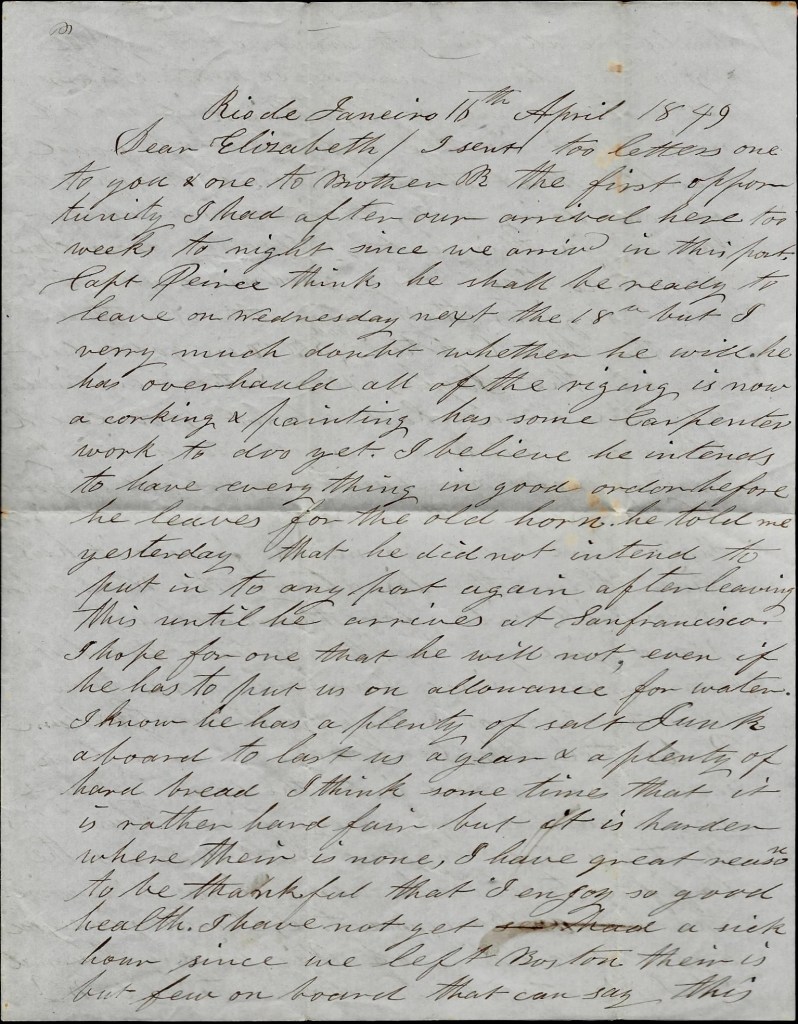 Rio de Janeiro 16th April 1849
Dear Elizabeth / I sent too letters one
to you & one to Brother B the first oppor
tunity I had after our arrival here too
weeks to night since we arrivd in this port.
Capt Peirce thinks he shall be ready to
leave on Wednesday next the 18th but I
verry much doubt whether he will. he
has overhauld all of the riging is now
a corking & painting has some Carpenter
work to doo yet. I believe he intends
to have every thing in good ordor before
he leaves for the old horn. he told me
yesterday that he did not intend to
put in to any port again after leaving
this until he arrives at Sanfrancisco.
I hope for one that he will not, even if
he has to put us on allowance for water.
I know he has a plenty of salt Junk
aboard to last us a year & a plenty of
hard bread I think some times that it
is rather hard fair but it is harder
where their is none, I have great reason
to be thankful that I enjoy so good
health. I have not yet had a sick
hour since we left Boston their is
but few on board that can say this